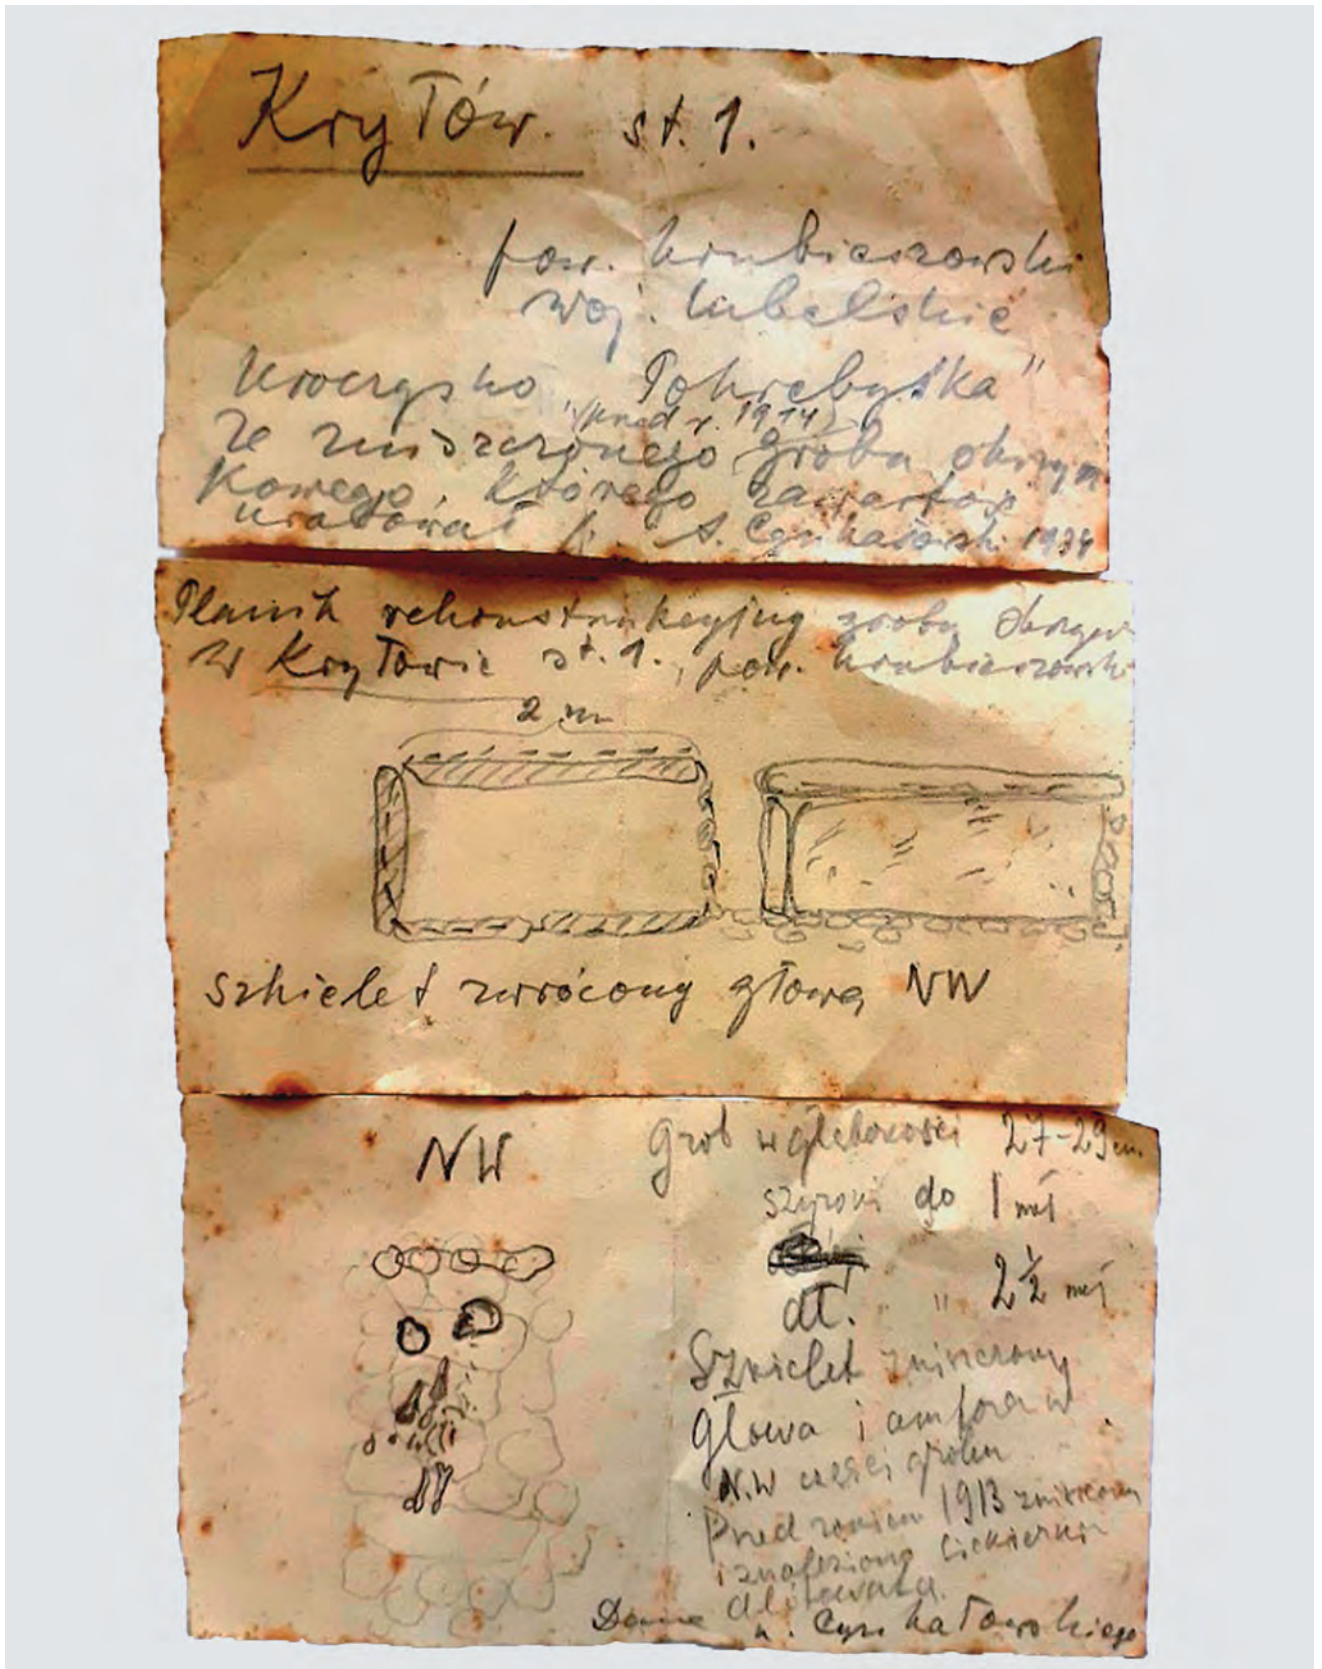 Kryłów. st. 1.
pow. hrubieszowski
woj. lubelskie
Uroczysko „Pohrebyśka"
(przed r. 1914)
ze zniszczonego grobu skrzyn
kowego, którego zawartość
uratował A. Cynkałowski 1934
Planik rekonstrukcyjny grobu
w Kryłowie st. 1., pow. hrubieszowski
2 m
szkielet zwrócony głową NW
NW
Grób w głębokości 27-29 cm.
szyroki do 1 mt
dł. " 2½ mt
Szkielet zniszczony
Głowa i amfora w
N.W części grobu
Przed rokiem 1913 zniszczony
i znaleziono siekierkę
Dane A. Cynkałowskiego